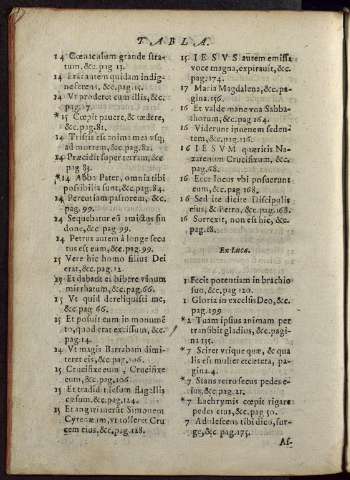 TABLA.
14 Cœnaculum grande stra-
tum, &c. pag. 13.
14 Erãt autem quidam indig-
nè ferens, &c. pag. 15.
14 Ut proderet eum illis, &c.
pag. 17.
*15 Cœpit pauere, & tædere,
&c. pag. 81.
14 Tristis est anima mea vsq;
ad mortem, &c. pag. 82.
14 Præcidit super terram, &c.
pag. 83.
*14 Abba Pater, omnia tibi
possibilia sunt, &c. pag. 84.
14 Percutiam pastorem, &c.
pag. 99.
14 Sequebatur eũ amictus sin
done, &c. pag. 99.
14 Petrus autem à longe secu
tus est eum, &c. pag. 99.
15 Vere hic homo filius Dei
erat, &c. pag. 12.
15 Et dabant ei bibere vinum
mirrhatum, &c. pag. 66.
15 Ut quid dereliquisti me,
&c. pag. 66.
15 Et posuit eum in monumẽ
to, quod erat excissum, &c.
pag. 14.
15 Ut magis Barrabam dimi-
teret eis, &c. pag. 106.
15 Crucifixe eum, Crucifixe
eum, &c. pag. 106.
15 Et tradidit Iesum flagellis
cæsum, &c. pag. 124.
15 Et angariauerunt Simonem
Cyrenæum, vt tolleret Cru
cem eius, &c. pag. 128.
15 IESVS autem emissa
voce magna, expirauit, &c.
pag. 174.
17 Maria Magdalena, &c. pa-
gina. 156.
16 Et valde mane vna Sabba-
thorum, &c. pag. 164.
16 Viderunt iuuenem seden-
tem, &c. pag. 116.
16 IESVM quæritis Na-
zarenum Crucifixum, &c.
pag. 168.
16 Ecce locus vbi posuerunt
eum, &c. pag. 168.
16 Sed ite dicite Discipulis
eius, & Petro, &c. pag. 168.
16 Surrexit, non est hic, &c.
pag. 168.
Ex Luca.
1 Fecit potentiam in brachio
suo, &c. pag. 120.
2 Gloria in excelsis Deo, &c.
pag. 199.
*2 Tuam ipsius animam per
transibit gladius, &c. pagi-
na 135.
*7 Sciret vtique quæ, & qua
lis est mulier etcætera, pagi-
na 4.
*7 Stans retro secus pedes e-
ius, &c. pag. 21.
*7 Lachrymis cœpit rigare
pedes eius, &c. pag. 50.
7 Adolescens tibi dico, sur-
ge, &c. pag. 175.
As-